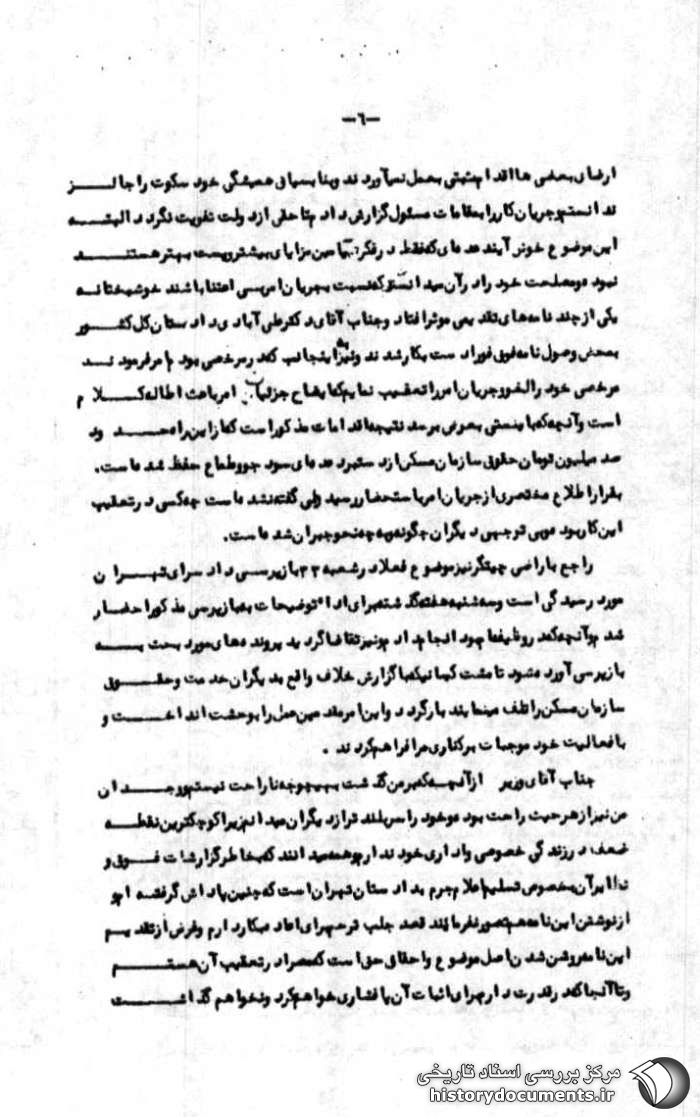 -٦-
ارضای بعضی ها اقدام مثبتی بعمل نمیآوردند و بنا بسیاق همیشگی خود سکوت را جائز
ندانستم و جریان کار را بمقامات مسئول گزارش دادم تا حقی از دولت تفویت نگردد البته
این موضوع خوش آیند عده ای که فقط در فکر تامین مزایای بیشتر و پست بهتر هستند
نبوده و مصلحت خود را در آن میدانستند که نسبت بجریان امر بی اعتنا باشند خوشبختانه
یکی از چند نامه های تقدیمی موثر افتاد و جناب آقای دکتر علی آبادی دادستان کل کشور
بمحض وصول نامه فوق فورا دست بکار شدند و نیز به اینجانب که در مرخصی بودم امر فرمودند
مرخصی خود را لغو و جریان امر را تعقیب نمایم که ایضاح جزئیات امر باعث اطاله کلام
است و آنچه که بایستی بعرض برسد نتیجه اقدامات مذکور است که از این راه حدود
صد میلیون تومان حقوق سازمان مسکن از دستبرد عده ای سود جو و طماع حفظ شده است.
بقرار اطلاع مختصری از جریان امر باستحضار رسید ولی گفته نشده است چه کسی در تعقیب
این کار بوده و بی توجهی دیگران چگونه و به چه نحو جبران شده است.
راجع باراضی چیتگر نیز موضوع فعلا در شعبه ٣٣ بازپرسی دادسرای تهران
مورد رسیدگی است و سه شنبه هفته گذشته برای ادای توضیحات به بازپرسی مذکور احضار
شدم و آنچه که در وظیفه ام بود انجام دادم و نیز تقاضا گردید پرونده های مورد بحث به
بازپرسی آورده شود تا مشت کسانیکه با گزارش خلاف واقع بدیگران خدمت و حقوق
سازمان مسکن را تلف مینمایند باز گردد و این امر بلند مین عمل را بوحشت انداخت و
با فعالیت خود موجبات برکناری مرا فراهم کردند .
جناب آقای وزیر از آنچه که بر من گذشت بهیچوجه ناراحت نیستم و وجدان
من نیز از هر حیث راحت بوده و خود را سربلند تر از دیگران میدانم زیرا کوچکترین نقطه
ضعف در زندگی خصوصی و اداری خود ندارم و همه میدانند که بخاطر گزارشات فوق و
بخصوص تسلیم اعلام جرم به دادستان تهران است که چنین پاداش گرفته ام و
از نوشتن این نامه هم تصور نفرمائید قصد جلب ترحم برای اعاده بکار دارم و غرض از تقدیم
این نامه روشن شدن اصل موضوع و احقاق حق است که مصرا در تعقیب آن هستم
و تا آنجا که در قدرت دارم برای اثبات آن پافشاری خواهم کرد و نخواهم گذاشت
مرکز بررسی اسناد تاریخی
historydocuments.ir